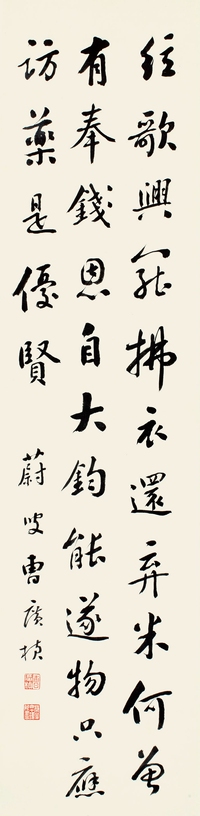 弦歌興罷拂衣還弃米何曾
有奉錢恩自大鈞能遂物只應
訪藥是優賢
蔚叟曹廣楨